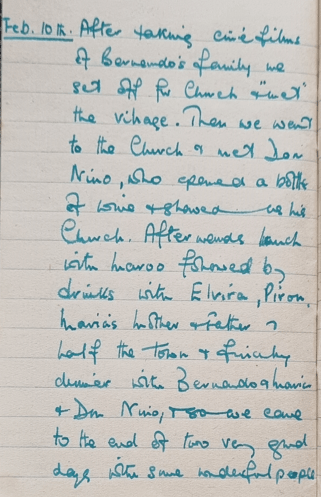 Feb. 10th. After taking ciné films
of Bernando's family we
set off for Church & "met"
the village. Then we went
to the Church & met Don
Nino, who opened a bottle
of wine & showed us his
Church. Afterwards lunch
with Maroo followed by
drinks with Elvira, Piron,
Maria's mother & father &
half the Town & finally
dinner with Bernando & Maria
& Don Nino, & so we came
to the end of two very good
days with some wonderful people